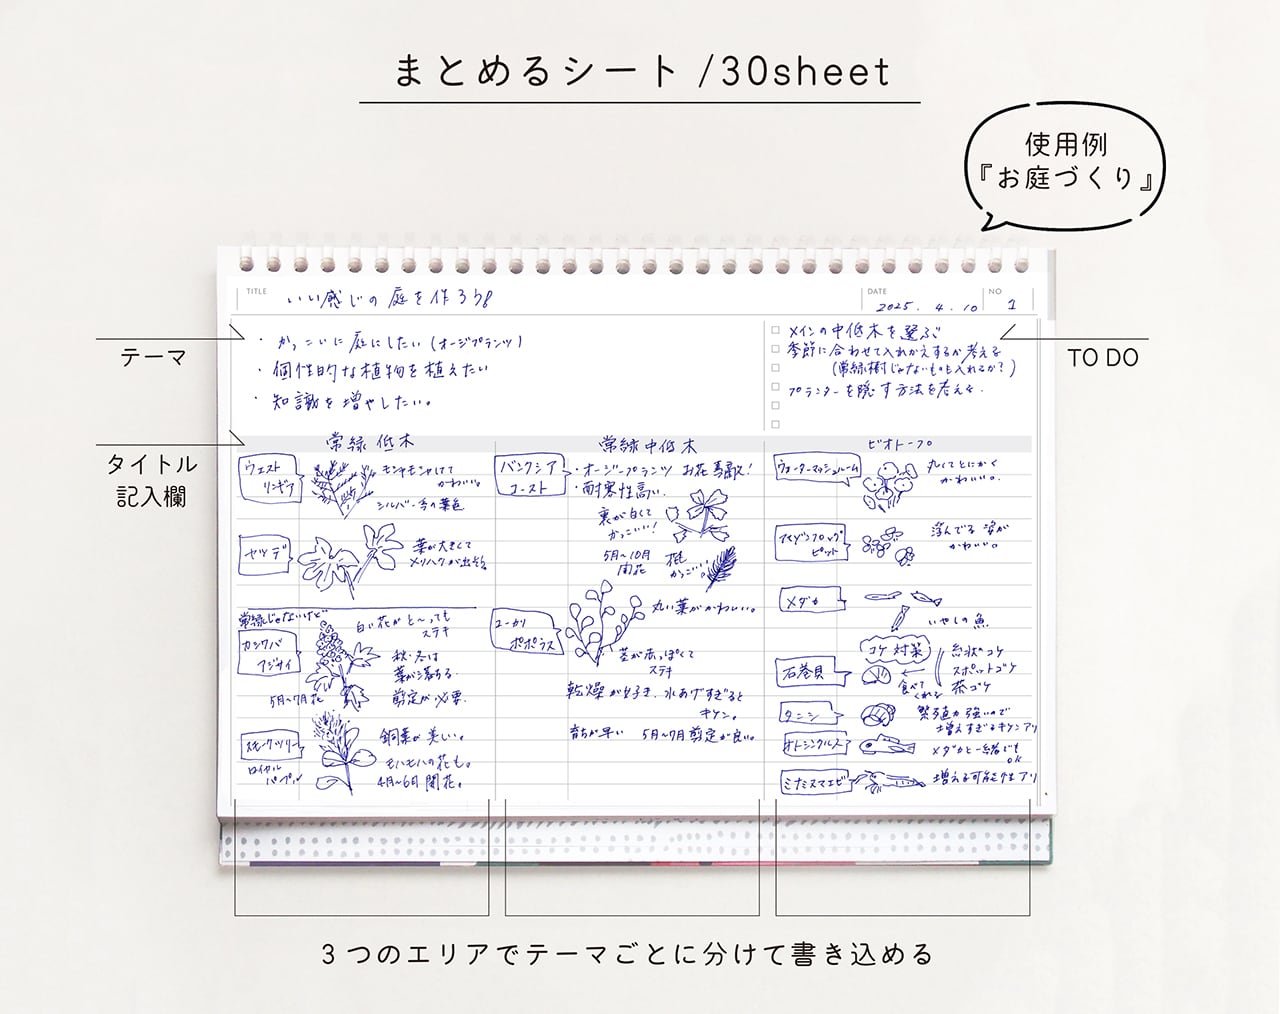 まとめるシート /30sheet
使用例
『お庭づくり』
TITLE
いい感じの庭を作ろう
DATE
2025. 4. 10
NO
1
テーマ
・かっこいい庭にしたい(オージプランツ)
・個性的な植物を植えたい
・知識を増やしたい。
TO DO
メインの中低木を選ぶ
季節に合わせて入れかえするか考える
(常緑樹じゃないものも入れるか?)
プランターを隠す方法を考える.
タイトル
記入欄
常緑 低木
ウエスト
リンギア
モシャモシャしてて
かわいい。
シルバー系の葉色
ヤツデ
葉が大きくて
メリハリが出せる
常緑じゃないけど
カシワバ
アジサイ
白い花がと〜っても
ステキ
秋・冬は
葉が落ちる.
5月〜7月花
剪定が必要.
スモークツリー
ロイヤル
パープル
銅葉が美しい。
モハモハの花も。
4月〜6月 開花。
常緑中低木
バンクシア
コースト
・オージープランツ お花 素敵!
・耐寒性高い.
裏が白くて
かっこいい!
5月〜10月
開花
花も
かっこいい。
ユーカリ
ポポラス
丸い葉がかわいい。
茎が赤っぽくて
ステキ
乾燥が好き、水あげすぎると
キケン。
育ちが早い 5月〜7月 剪定が良い。
ビオトープ
ウォーターマッシュルーム
丸くてとにかく
かわいい。
アマゾンフロッグ
ピット
浮んでる姿が
かわいい。
メダカ
いやしの魚
コケ対策
石巻貝
食べて
くれる
糸状のコケ
スポットゴケ
茶ゴケ
タニシ
繁殖力強いので
増えすぎるキケンアリ
オトシンクルス
メダカと一緒でも
OK
ミナミヌマエビ
増える可能性アリ
3つのエリアでテーマごとに分けて書き込める